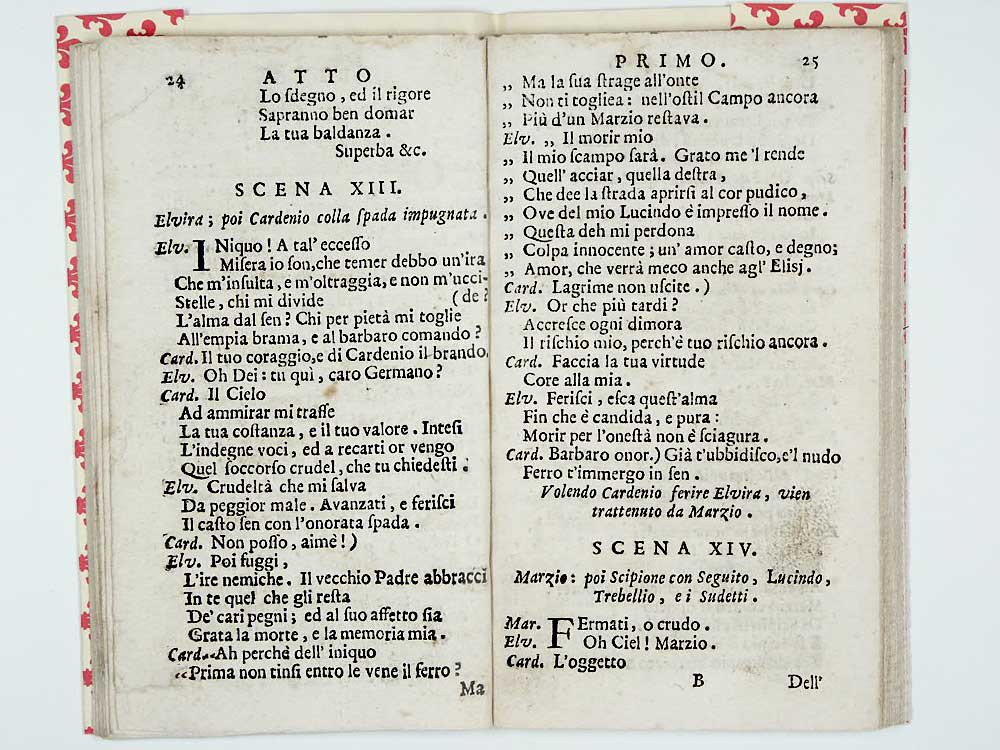 24 ATTO
Lo sdegno, ed il rigore
Sapranno ben domar
La tua baldanza.
Superba &c.
SCENA XIII.
Elvira; poi Cardenio colla spada impugnata.
Elv. INiquo! A tal' eccesso
Misera io son, che temer debbo un'ira
Che m'insulta, e m'oltraggia, e non m'ucci-
Stelle, chi mi divide (de?
L'alma dal sen? Chi per pietà mi toglie
All'empia brama, e al barbaro comando?
Card. Il tuo coraggio, e di Cardenio il brando.
Elv. Oh Dei: tu quì, caro Germano?
Card. Il Cielo
Ad ammirar mi trasse
La tua costanza, e il tuo valore. Intesi
L'indegne voci, ed a recarti or vengo
Quel soccorso crudel, che tu chiedesti.
Elv. Crudeltà che mi salva
Da peggior male. Avanzati, e ferisci
Il casto sen con l'onorata spada.
Card. Non posso, aimè!)
Elv. Poi fuggi,
L'ire nemiche. Il vecchio Padre abbracci
In te quel che gli resta
De' cari pegni; ed al suo affetto sia
Grata la morte, e la memoria mia.
Card. „Ah perchè dell' iniquo
„Prima non tinsi entro le vene il ferro?
Ma
PRIMO. 25
„ Ma la sua strage all'onte
„ Non ti togliea: nell'ostil Campo ancora
„ Più d'un Marzio restava.
Elv. „ Il morir mio
„ Il mio scampo sarà. Grato me 'l rende
„ Quell' acciar, quella destra,
„ Che dee la strada aprirsi al cor pudico,
„ Ove del mio Lucindo è impresso il nome.
„ Questa deh mi perdona
„ Colpa innocente; un' amor casto, e degno;
„ Amor, che verrà meco anche agl' Elisj.
Card. Lagrime non uscite.)
Elv. Or che più tardi?
Accresce ogni dimora
Il rischio mio, perch'è tuo rischio ancora.
Card. Faccia la tua virtude
Core alla mia.
Elv. Ferisci, esca quest'alma
Fin che è candida, e pura:
Morir per l'onestà non è sciagura.
Card. Barbaro onor.) Già t'ubbidisco, e'l nudo
Ferro t'immergo in sen.
Volendo Cardenio ferire Elvira, vien
trattenuto da Marzio.
SCENA XIV.
Marzio: poi Scipione con Seguito, Lucindo,
Trebellio, e i Sudetti.
Mar. FErmati, o crudo.
Elv. Oh Ciel! Marzio.
Card. L'oggetto
B Dell'